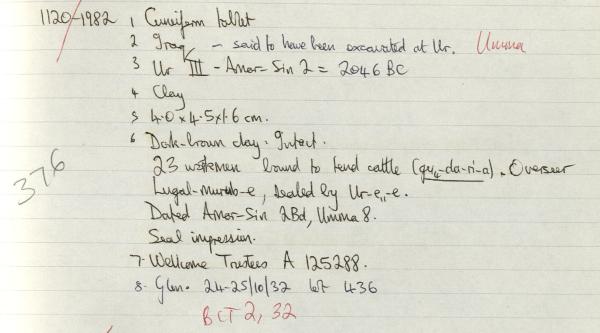 1120-1982 1 Cuneiform tablet
2 Iraq - said to have been excavated at Ur. Umma
3 Ur III - Amar-Sin 2 = 2046 BC
4 Clay
5 4.0 x 4.5 x 1.6 cm.
6 Dark-brown clay. Intact.
23 workmen bound to tend cattle (gu4-da-ri-a). Overseer
376
Lugal-murub-e, sealed by Ur-e11-e.
Dated Amar-Sin 2Bd, Umma 8.
Seal impression.
7. Wellcome Trustees A 125288.
8. Glen. 24-25/10/32 lot 436
BCT 2, 32